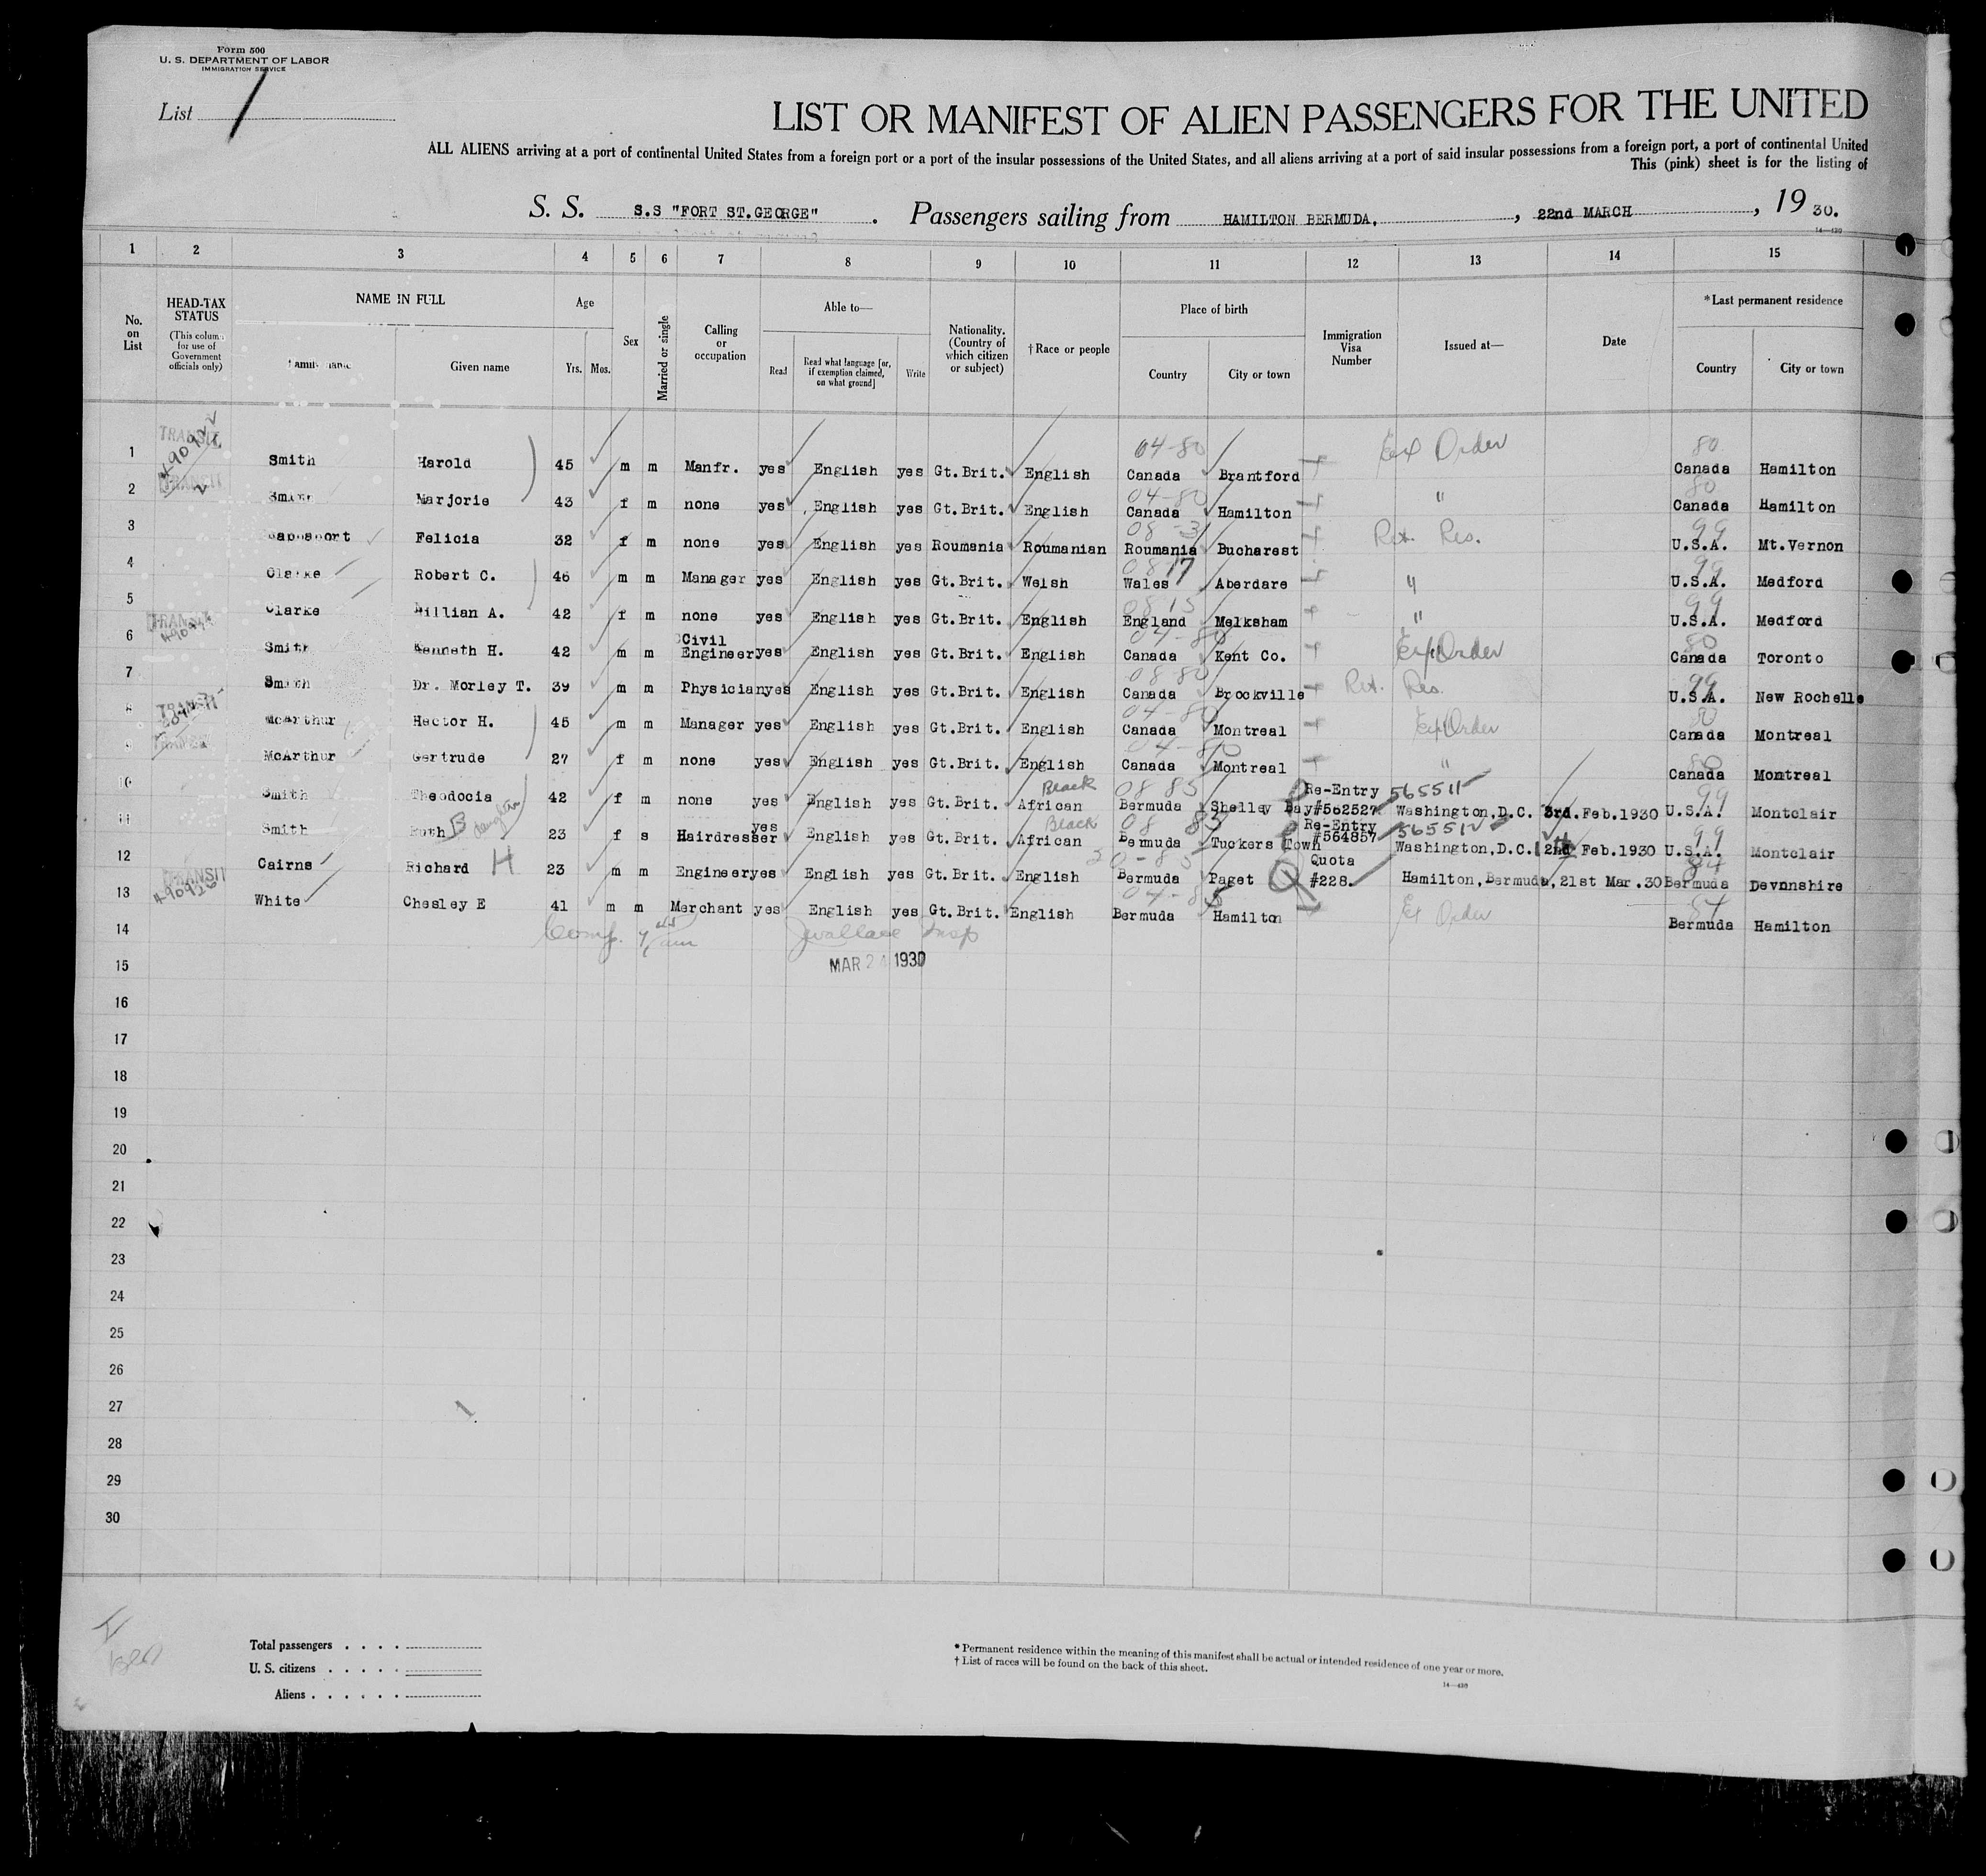 Form 500
U. S. DEPARTMENT OF LABOR
IMMIGRATION SERVICE
List 1
LIST OR MANIFEST OF ALIEN PASSENGERS FOR THE UNITED
ALL ALIENS arriving at a port of continental United States from a foreign port or a port of the insular possessions of the United States, and all aliens arriving at a port of said insular possessions from a foreign port, a port of continental United
This (pink) sheet is for the listing of
S. S. S.S "FORT ST.GEORGE". Passengers sailing from HAMILTON BERMUDA, , 22nd MARCH , 19 30.
14—430
1 2 3 4 5 6 7 8 9 10 11 12 13 14 15
No. on List
HEAD-TAX STATUS (This column for use of Government officials only)
NAME IN FULL
Family name Given name
Age
Yrs. Mos.
Sex
Married or single
Calling or occupation
Able to—
Read Read what language [or, if exemption claimed, on what ground] Write
Nationality. (Country of which citizen or subject)
†Race or people
Place of birth
Country City or town
Immigration Visa Number
Issued at—
Date
*Last permanent residence
Country City or town
1 TRANSIT Smith Harold 45 m m Manfr. yes English yes Gt.Brit. English 04-80 Canada Brantford Ex Order 80 Canada Hamilton
2 TRANSIT Smith Marjorie 43 f m none yes English yes Gt.Brit. English 04-80 Canada Hamilton " 80 Canada Hamilton
3 Felicia 32 f m none yes English yes Roumania Roumanian 08-31 Roumania Bucharest Ret. Res. 99 U.S.A. Mt.Vernon
4 Clarke Robert C. 46 m m Manager yes English yes Gt.Brit. Welsh 0817 Wales Aberdare " 99 U.S.A. Medford
5 Clarke Lillian A. 42 f m none yes English yes Gt.Brit. English 0815 England Melksham " 99 U.S.A. Medford
6 TRANSIT Smith Kenneth H. 42 m m Civil Engineer yes English yes Gt.Brit. English 04-80 Canada Kent Co. Ex Order 80 Canada Toronto
7 Smith Dr. Morley T. 39 m m Physician yes English yes Gt.Brit. English 08-80 Canada Brockville Ret. Res. 99 U.S.A. New Rochelle
8 TRANSIT McArthur Hector H. 45 m m Manager yes English yes Gt.Brit. English 04-80 Canada Montreal Ex Order 80 Canada Montreal
9 TRANSIT McArthur Gertrude 27 f m none yes English yes Gt.Brit. English 04-80 Canada Montreal " 80 Canada Montreal
10 Smith Theodocia 42 f m none yes English yes Gt.Brit. Black African 08 85 Bermuda Shelley Bay Re-Entry #562527 565511 Washington,D.C. 3rd.Feb.1930 99 U.S.A. Montclair
11 Smith Ruth B daughter 23 f s Hairdresser yes English yes Gt.Brit. Black African 08 85 Bermuda Tuckers Town Re-Entry #564857 565512 Washington,D.C. 2nd Feb.1930 99 U.S.A. Montclair
12 Cairns Richard H 23 m m Engineer yes English yes Gt.Brit. English 20-85 Bermuda Paget Q Quota #228. Hamilton,Bermuda,21st Mar.30 84 Bermuda Devonshire
13 TRANSIT White Chesley E 41 m m Merchant yes English yes Gt.Brit. English 04-85 Bermuda Hamilton Ex Order 84 Bermuda Hamilton
14 Wallace Insp
15 MAR 24 1930
16
17
18
19
20
21
22
23
24
25
26
27
28
29
30
Total passengers . . . .
U. S. citizens . . . . .
Aliens . . . . . .
* Permanent residence within the meaning of this manifest shall be actual or intended residence of one year or more.
† List of races will be found on the back of this sheet.
14—430